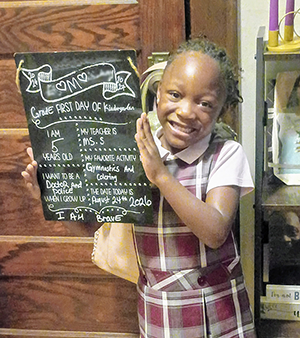 OMO
Grade FIRST DAY OF Kindergarten
I AM
5
YEARS OLD
MY TEACHER IS
Ms. S
MY FAVORITE ACTIVITY
Gymnastics And
Coloring
I WANT TO BE A
Doctor and
police
WHEN I GROW UP
THE DATE TODAY IS
August 24th 2026
I AM BRAVE